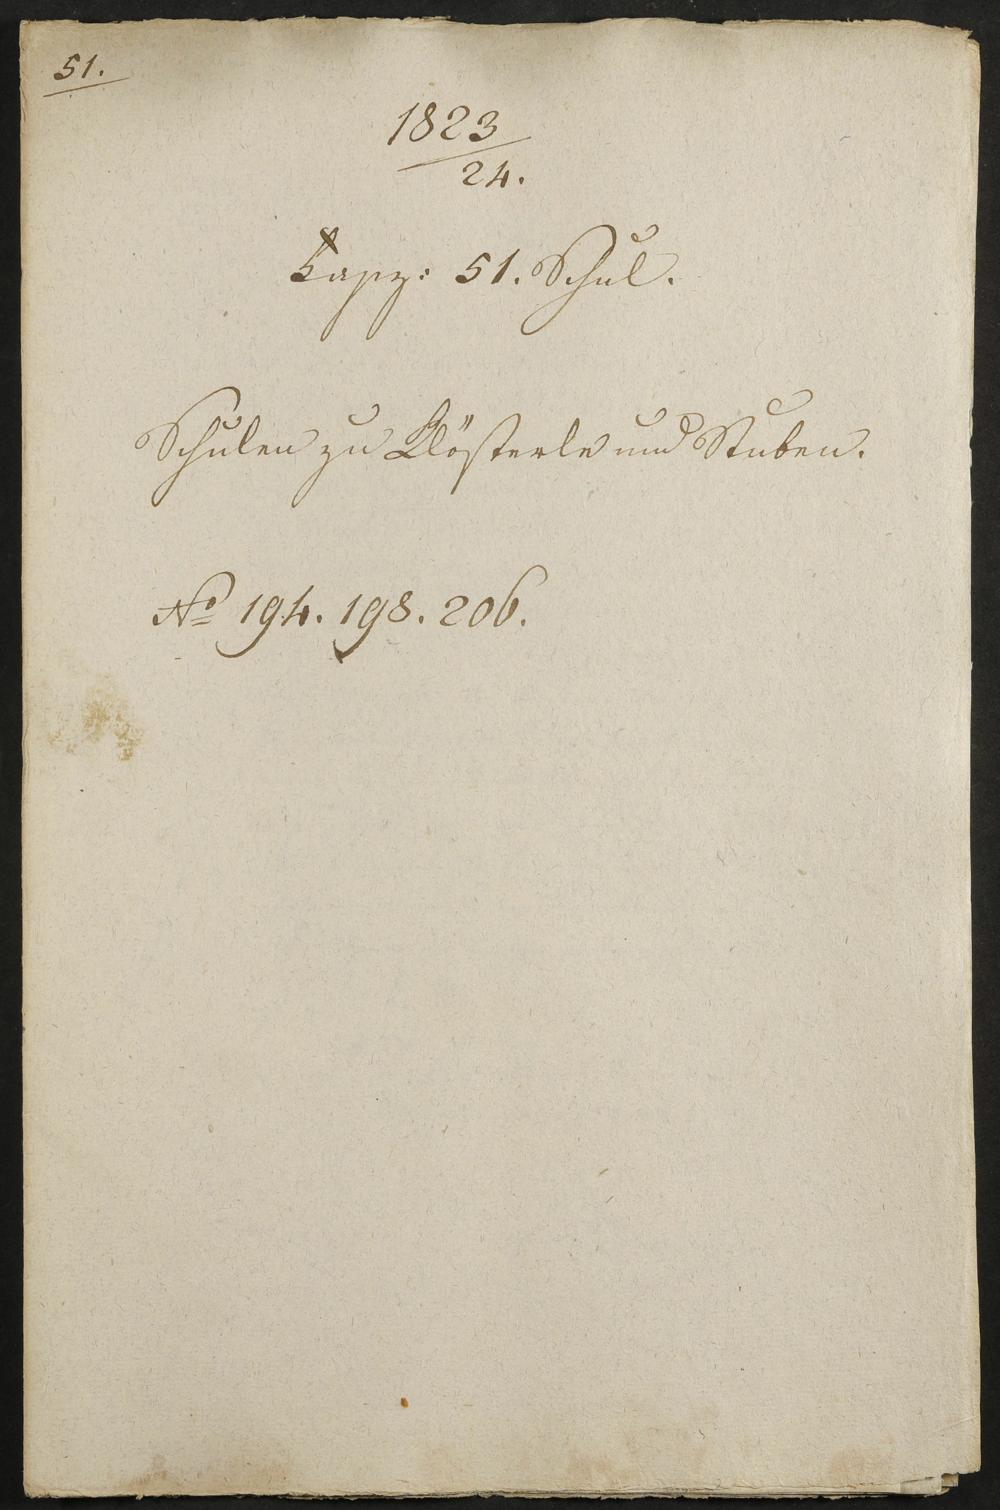 51.
1823
24.
51. Schul.
Schulen zu Klösterle und Stuben.
No 194. 198. 206.